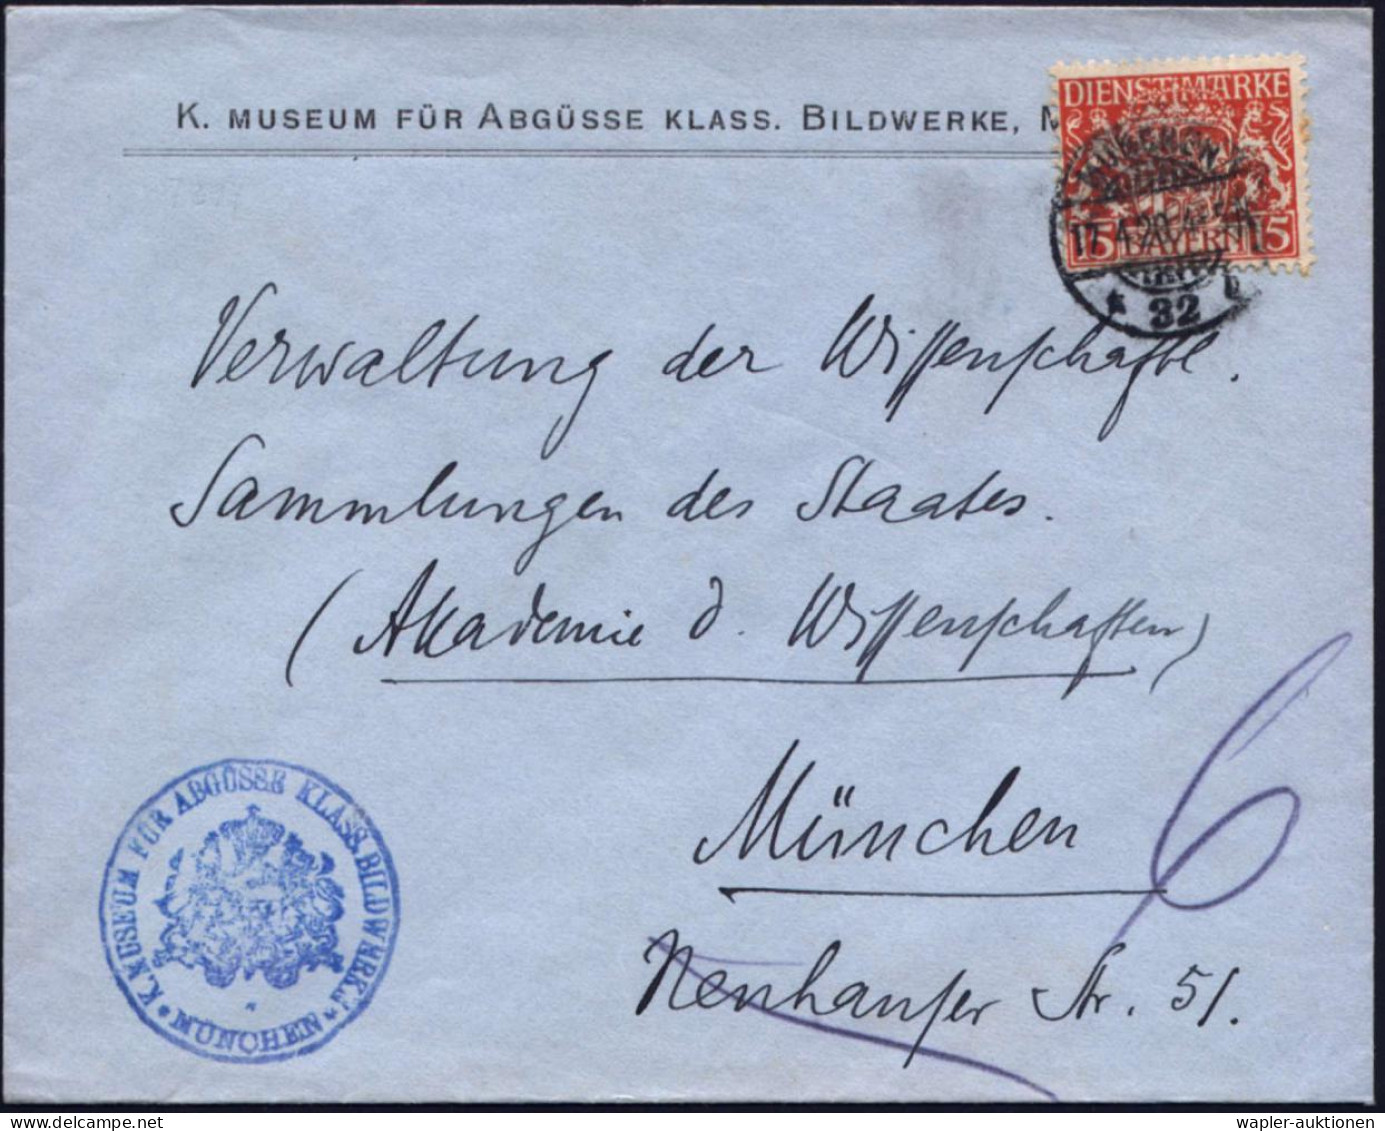 K. MUSEUM FÜR ABGÜSSE KLASS. BILDWERKE, M
DIENSTMARKE
MÜNCHEN
17.4.20. 4-5 N
15 BAYERN 15
* 32 b
Verwaltung der Wissenschaftl.
Sammlungen des Staates.
(Akademie d. Wissenschaften)
München
6
Neuhauser Str. 51.
* K. MUSEUM FÜR ABGÜSSE KLASS. BILDWERKE *
MÜNCHEN
wapler-auktionen